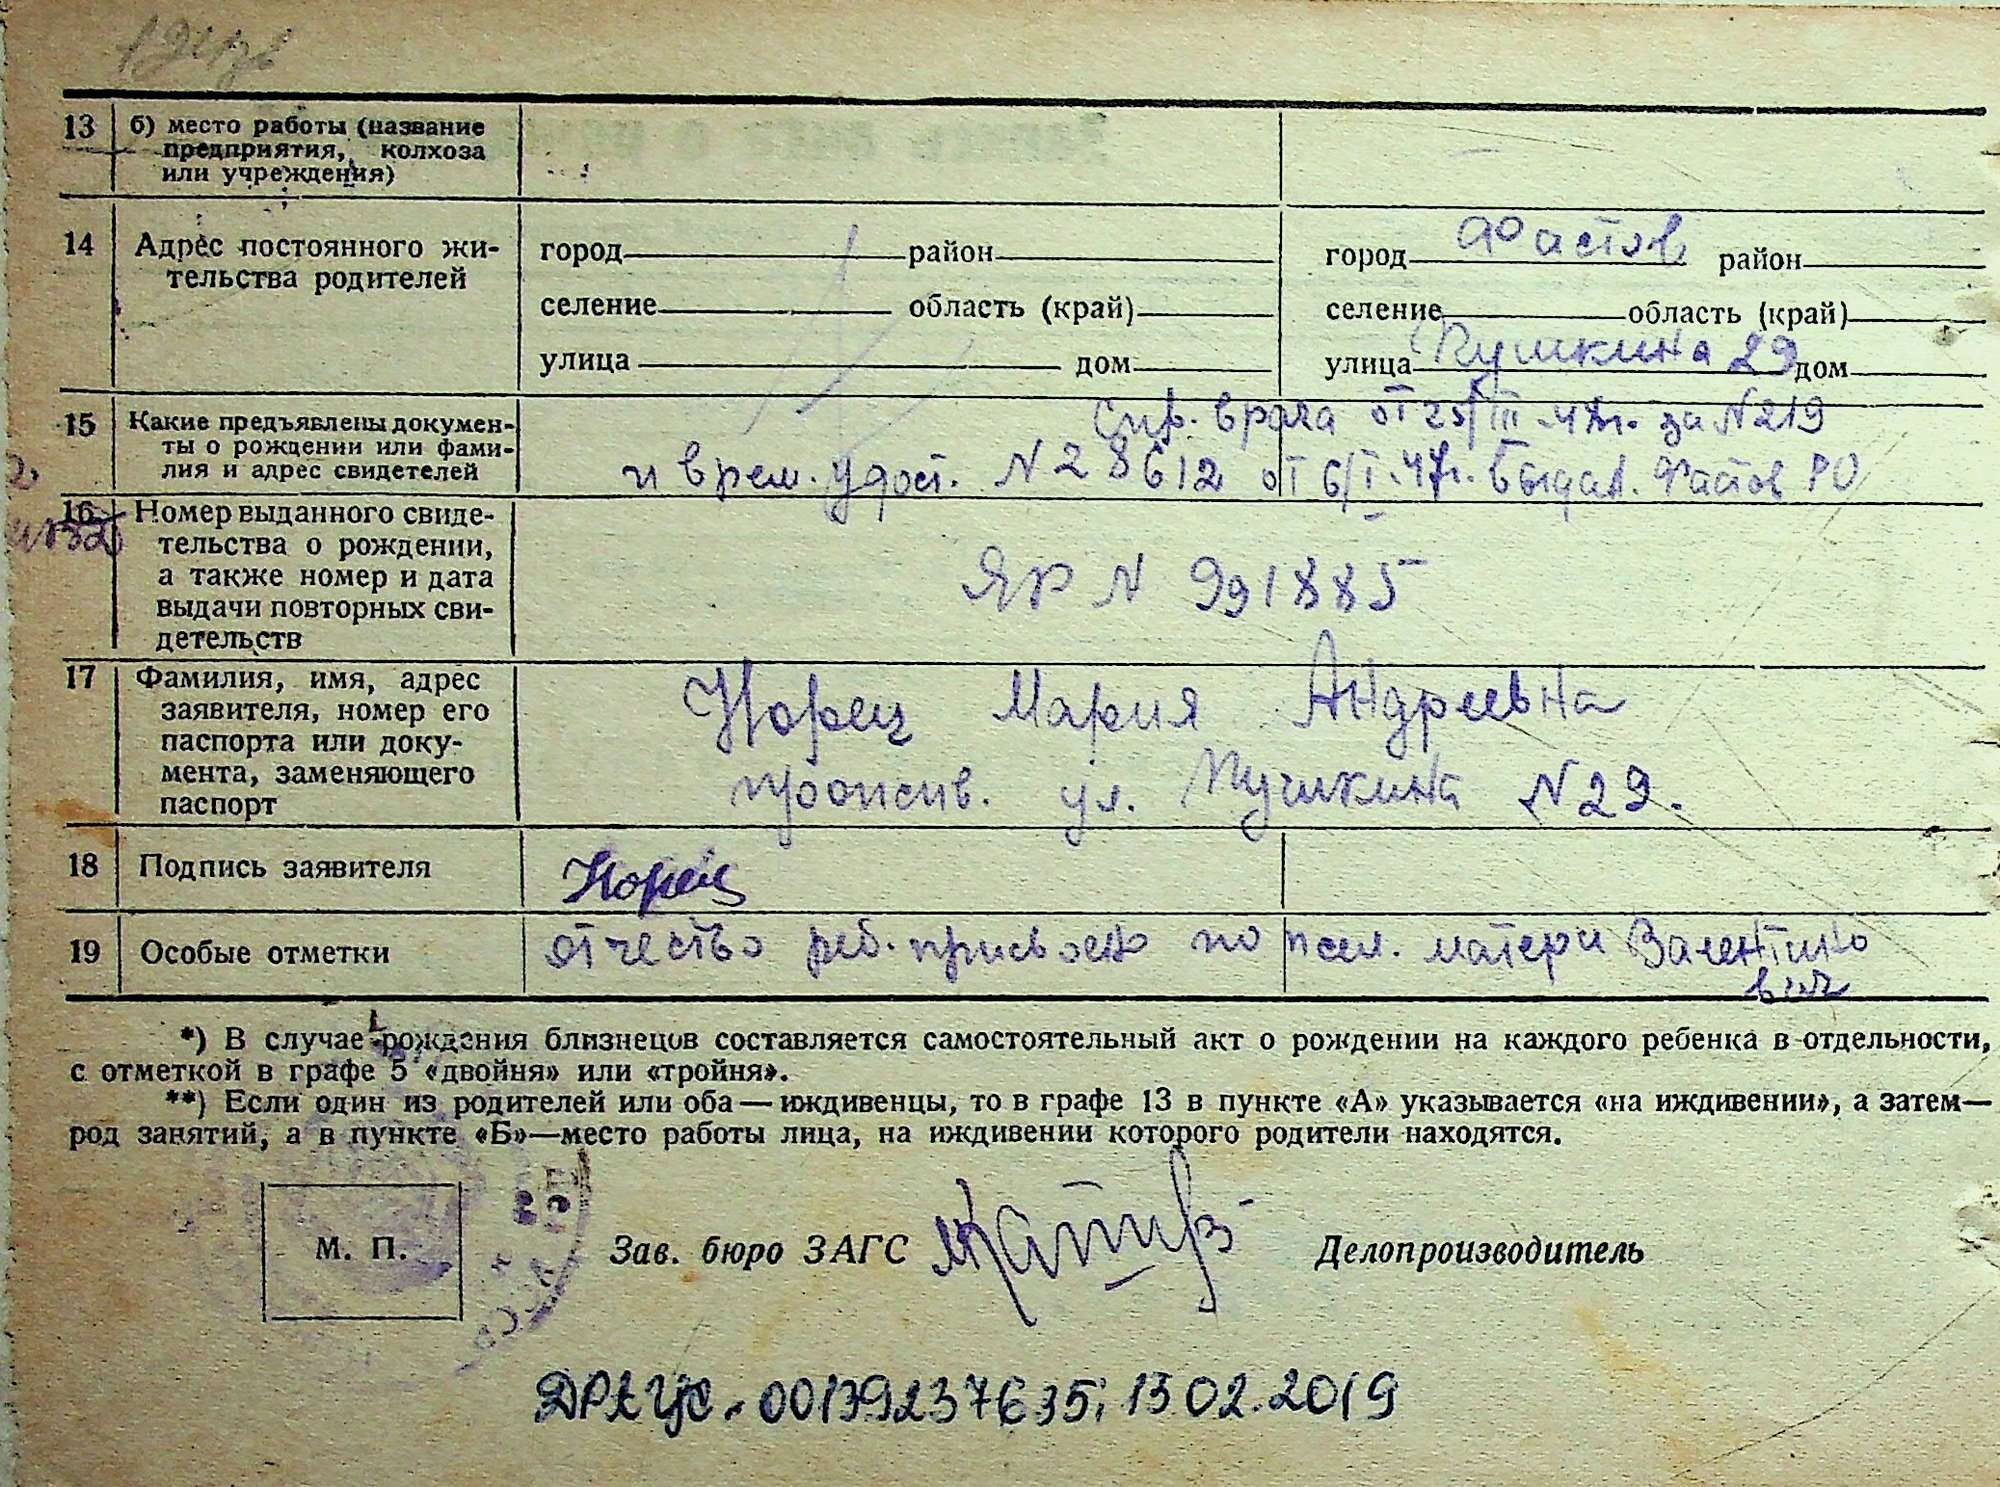 13 б) место работы (название
предприятия, колхоза
или учреждения)
14 Адрес постоянного жи-
тельства родителей
город район
селение область (край)
улица дом
город Фастов район
селение область (край)
улица Пушкина 29 дом
15 Какие предъявлены докумен-
ты о рождении или фами-
лия и адрес свидетелей
Спр. врача от 25/III-47г. за N219
и врем. удост. N28612 от 6/I-47г. выдан. Фастов РО
16 Номер выданного свиде-
тельства о рождении,
а также номер и дата
выдачи повторных сви-
детельств
ЯР N 991885
17 Фамилия, имя, адрес
заявителя, номер его
паспорта или доку-
мента, заменяющего
паспорт
Норец Мария Андреевна
прожив. ул. Пушкина N29.
18 Подпись заявителя
Норец
19 Особые отметки
отчество реб. присвоено по матери Валентино
вич
*) В случае рождения близнецов составляется самостоятельный акт о рождении на каждого ребенка в отдельности,
с отметкой в графе 5 «двойня» или «тройня».
**) Если один из родителей или оба—иждивенцы, то в графе 13 в пункте «А» указывается «на иждивении», а затем—
род занятий, а в пункте «Б»—место работы лица, на иждивении которого родители находятся.
М. П.
Зав. бюро ЗАГС
Делопроизводитель
00139237635; 13 02.2019